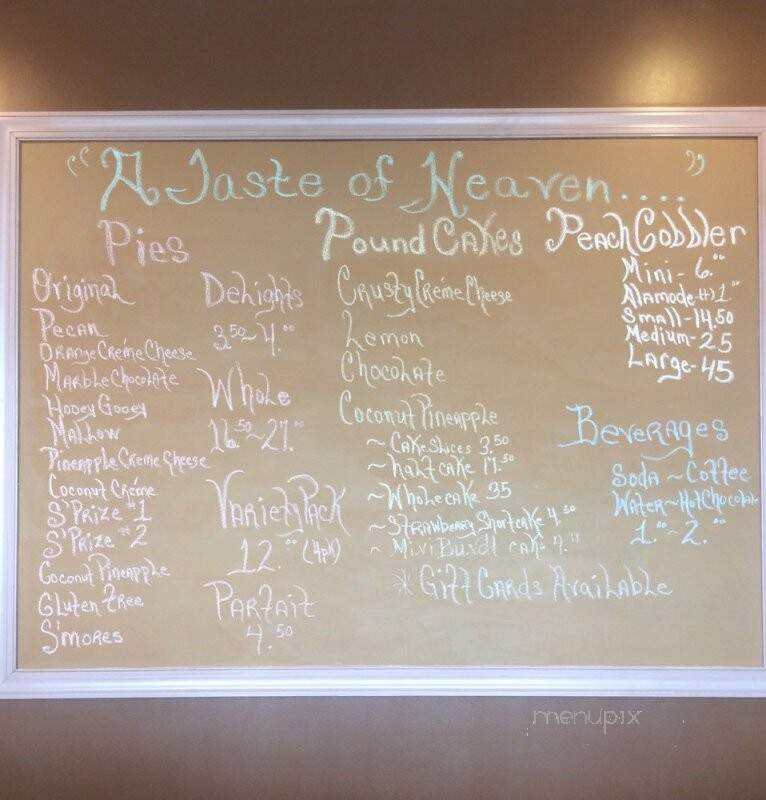 "A Taste of Heaven...."
Pies
Original
Pecan
Orange Créme Cheese
Marble Chocolate
Hooey Gooey
Mallow
Pineapple Creme Cheese
Coconut Créme
S'Prize #1
S'Prize #2
Coconut Pineapple
Gluten Free
S'mores
Delights
3.50~4.00
Whole
16.50~27.00
Variety Pack
12.00 (4pk)
Parfait
4.50
Pound Cakes
Crusty Créme Cheese
Lemon
Chocolate
Coconut Pineapple
~Cake Slices 3.50
~half cake 17.50
~Whole cake 35
~Strawberry Shortcake 4.50
~Mini Bundt cake 4.00
*Gift Cards Available
Peach Cobbler
Mini-6.00
Alamode 1.00
Small-14.50
Medium-25
Large-45
Beverages
Soda~Coffee
Water~Hot Chocolate
1.00~2.00
menupix